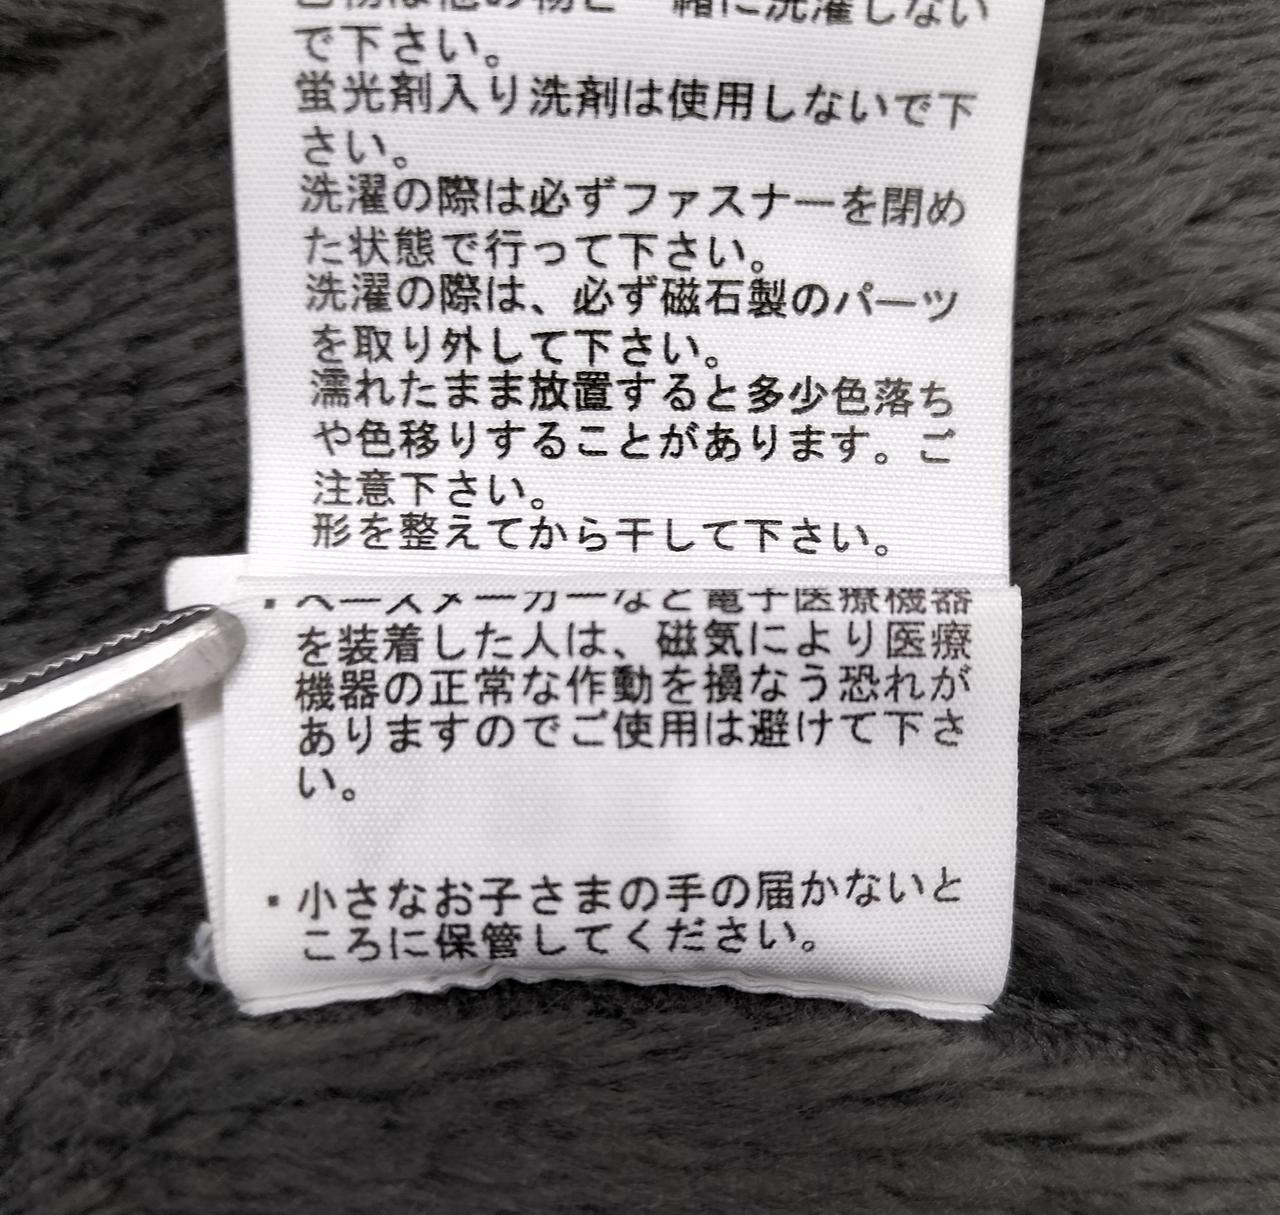 色物は他の物と一緒に洗濯しない
で下さい。
蛍光剤入り洗剤は使用しないで下
さい。
洗濯の際は必ずファスナーを閉め
た状態で行って下さい。
洗濯の際は、必ず磁石製のパーツ
を取り外して下さい。
濡れたまま放置すると多少色落ち
や色移りすることがあります。ご
注意下さい。
形を整えてから干して下さい。
・ペースメーカーなど電子医療機器
を装着した人は、磁気により医療
機器の正常な作動を損なう恐れが
ありますのでご使用は避けて下さ
い。
・小さなお子さまの手の届かないと
ころに保管してください。